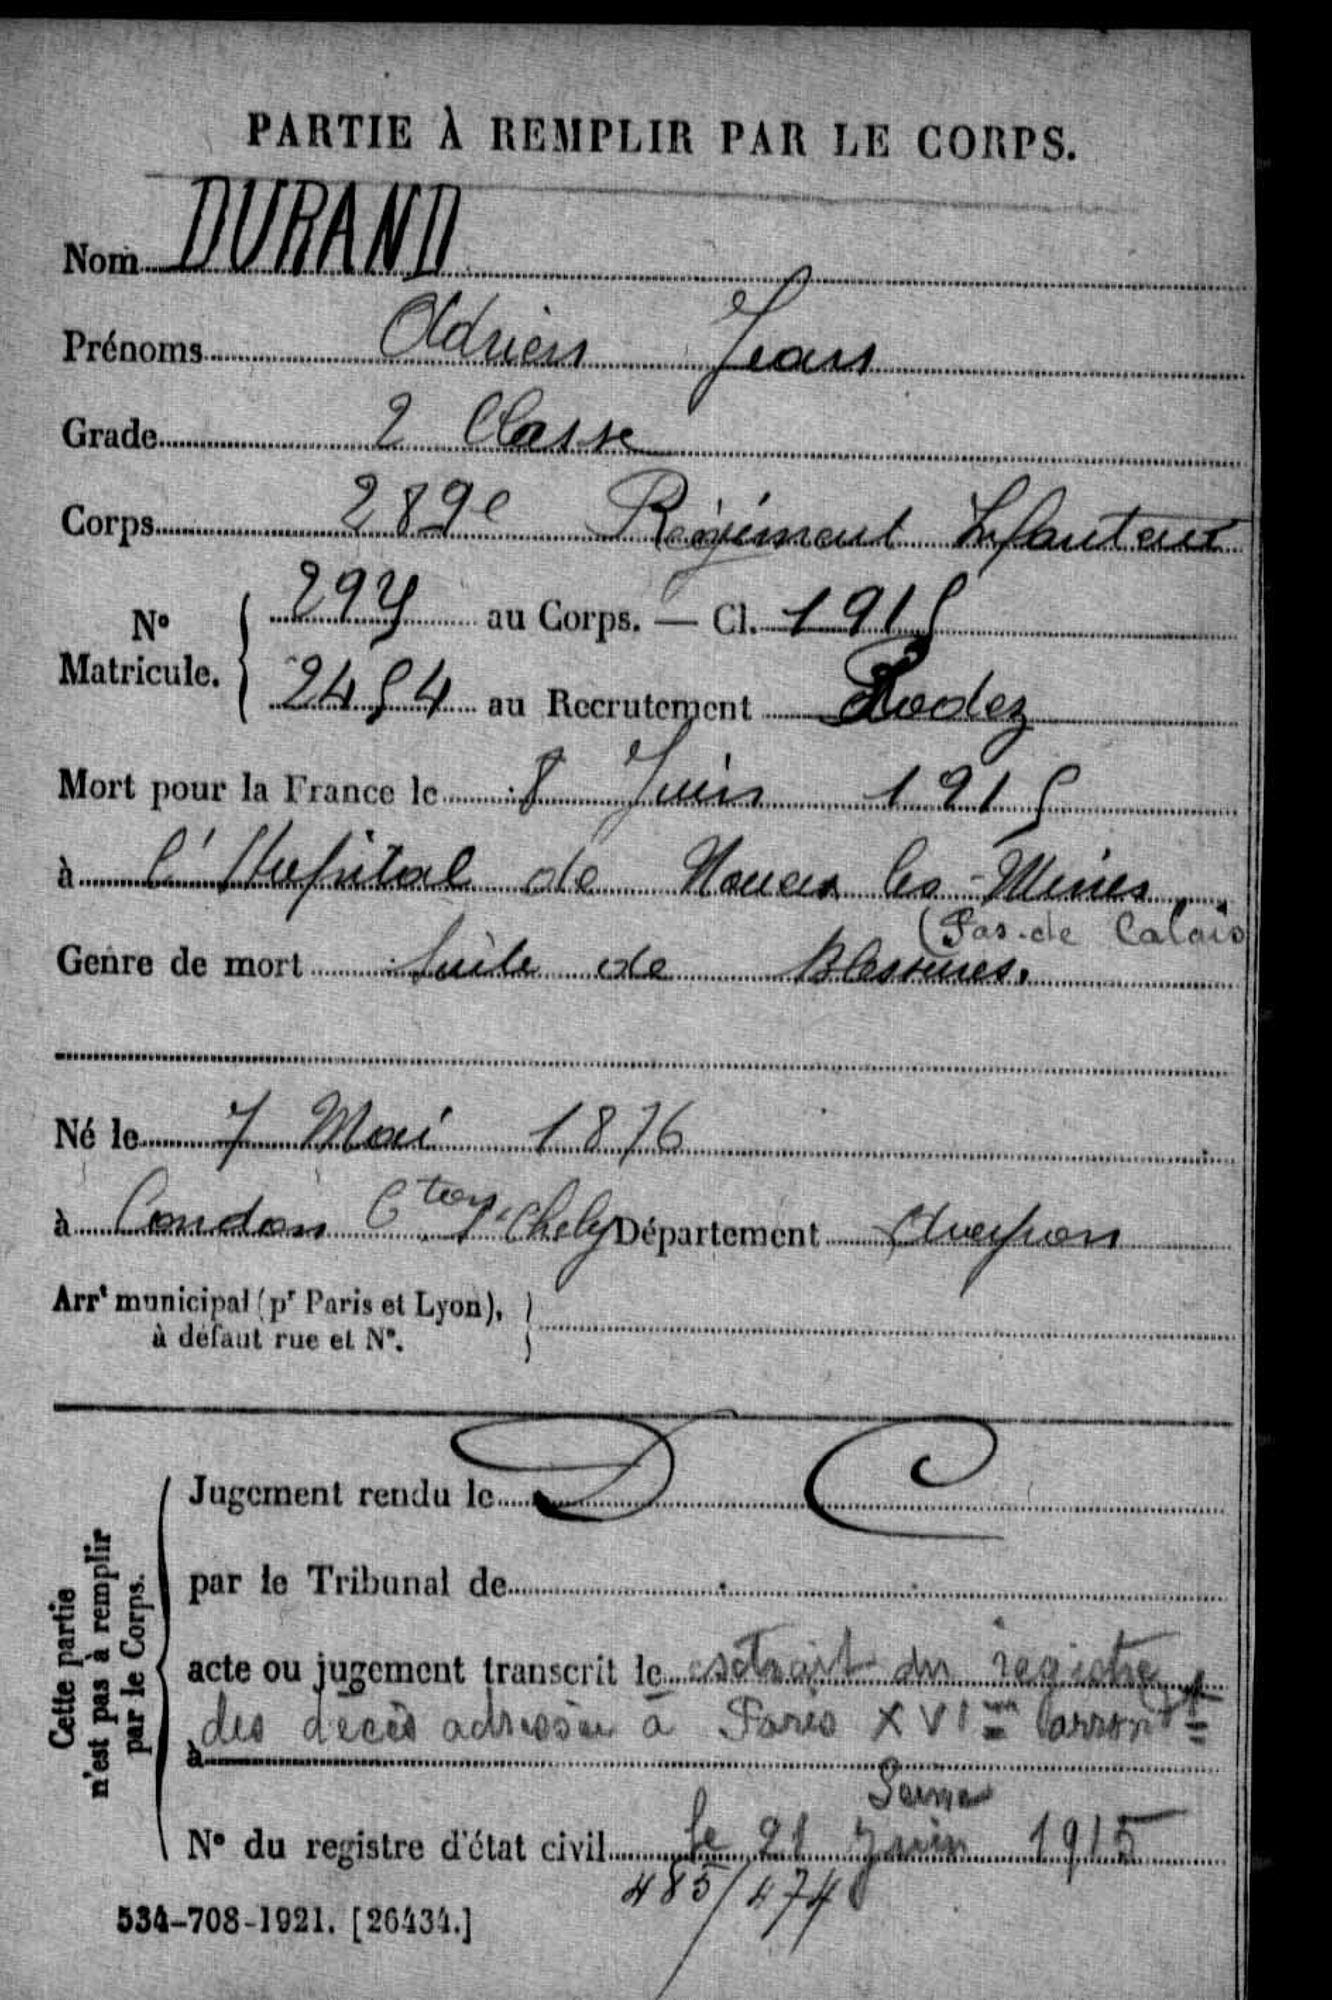 PARTIE À REMPLIR PAR LE CORPS.
Nom DURAND
Prénoms Adrien Jean
Grade 2 Classe
Corps 289e Régiment Infanterie
N° Matricule. 
297 au Corps. — Cl. 1915
2454 au Recrutement Rodez
Mort pour la France le 8 Juin 1915
à l'Hopital de Noeux les-Mines
(Pas-de Calais
Genre de mort Suite de Blessures.
Né le 7 Mai 1876
à Condom Cton St Chely Département Aveyron
Arrt municipal (pr Paris et Lyon),
à défaut rue et N°.
Cette partie
n'est pas à remplir
par le Corps.
D C
Jugement rendu le
par le Tribunal de
acte ou jugement transcrit le extrait du registre
à des décès adressé à Paris XVIme arrondt
Seine
N° du registre d'état civil le 21 Juin 1915
485/474
534-708-1921. [26434.]